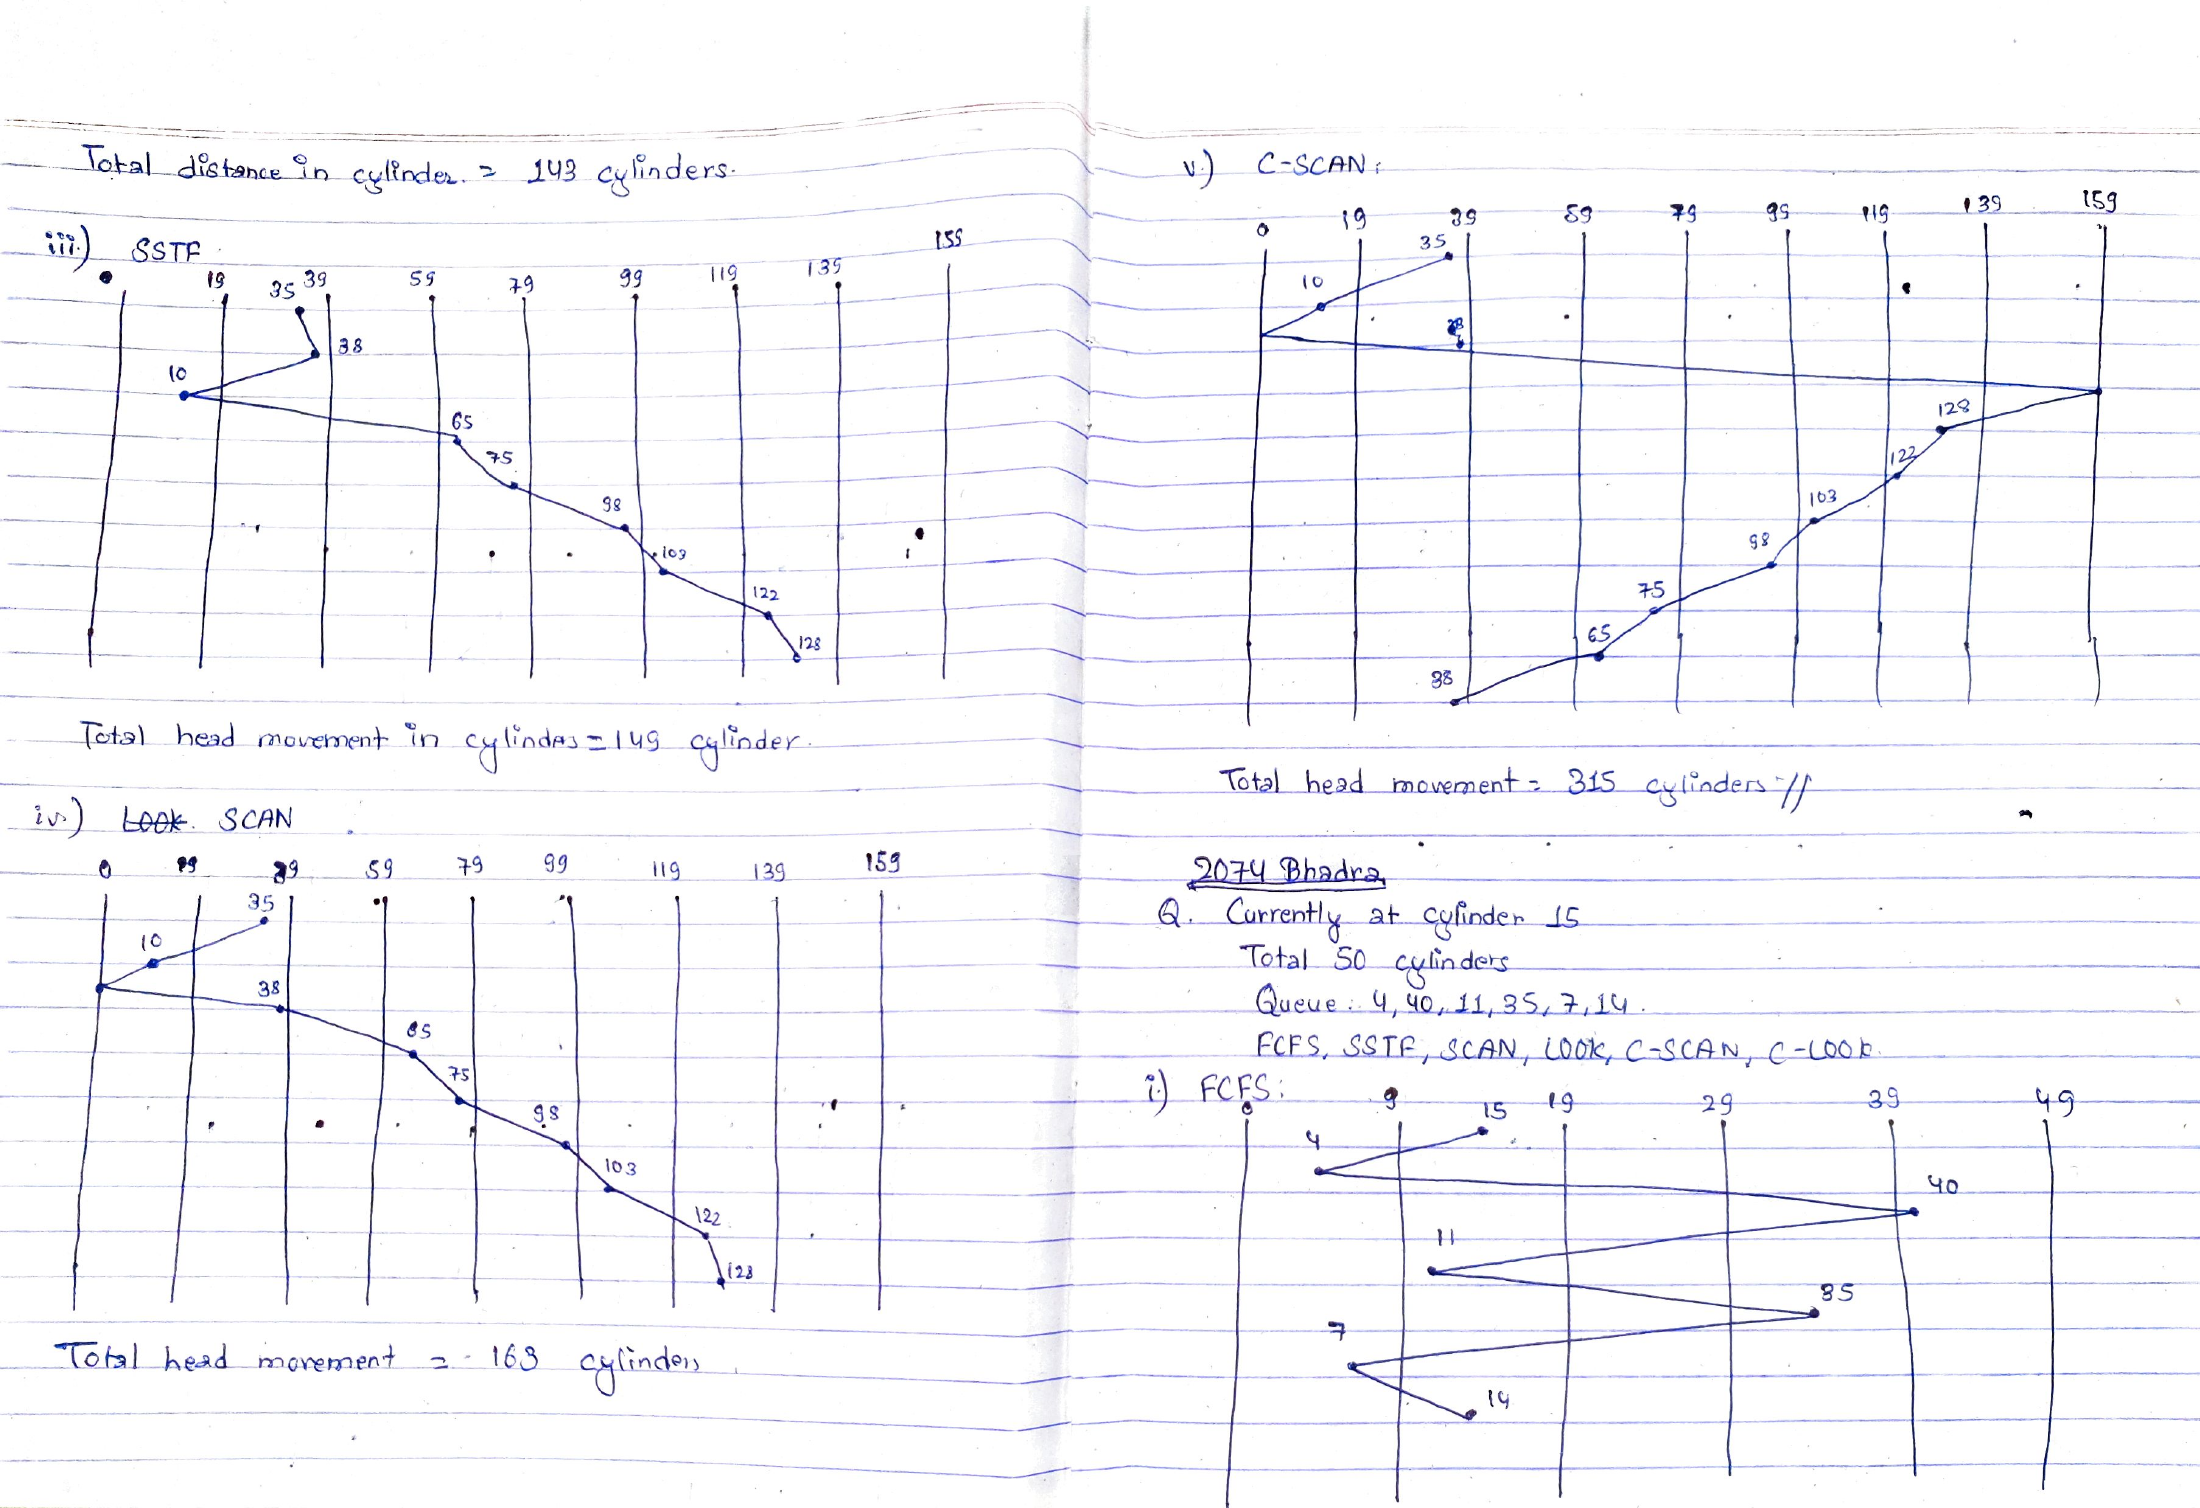 Total distance in cylinder. = 143 cylinders.
iii.) SSTF
19 39 59 79 99 119 139 159
35
38
10
65
75
98
103
122
128
Total head movement in cylinders = 149 cylinder.
iv.) SCAN
0 19 39 59 79 99 119 139 159
35
10
38
65
75
98
103
122
128
Total head movement = 163 cylinders
v.) C-SCAN:
0 19 39 59 79 99 119 139 159
35
10
38
128
122
103
98
75
65
38
Total head movement = 315 cylinders //
2074 Bhadra
Q. Currently at cylinder 15
Total 50 cylinders
Queue: 4, 40, 11, 35, 7, 14.
FCFS, SSTF, SCAN, LOOK, C-SCAN, C-LOOK.
i.) FCFS:
0 9 15 19 29 39 49
4
40
11
35
7
14